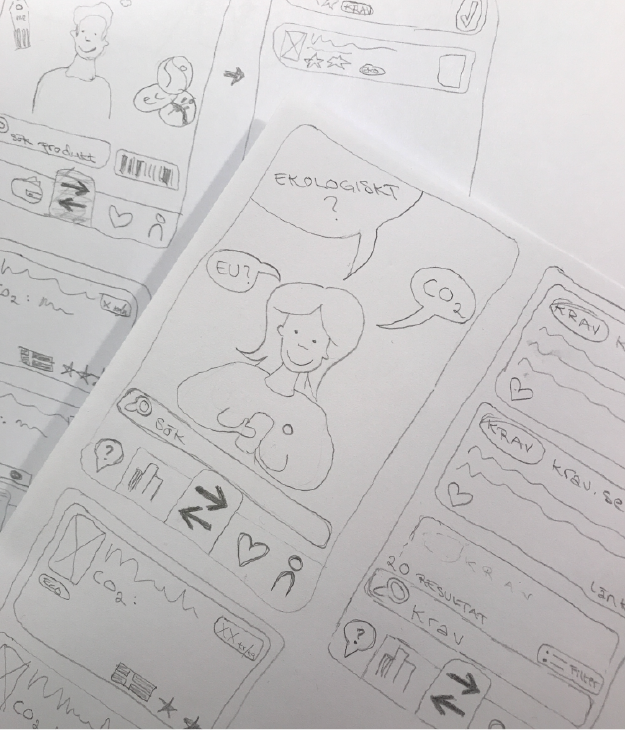 KRAV
Sök produkt
CO₂:
EKOLOGISKT
?
EU?
CO₂
SÖK
?
CO₂:
XX kr/st
CO₂
KRAV K
KRAV krav.se
KRAV
Länk
20 RESULTAT
Krav
Filter
?